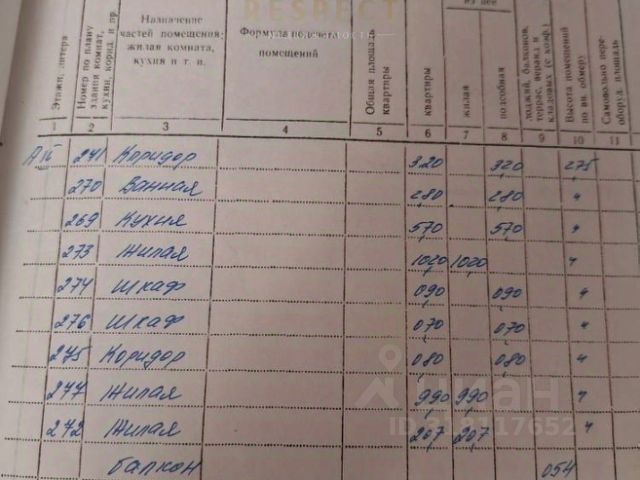 RESPECT
из нее
Этажи, литера
Номер по плану здания комнат, кухни, корид. и пр.
Назначение частей помещения: жилая комната, кухня и т. п.
Формула подсчета помещений
Общая площадь квартиры
квартиры
жилая
подсобная
лоджий, балконов, террас, веранд и кладовых (с коэф.)
Высота помещений по вн. обмеру
Самовольно пере- оборуд. площадь
1 2 3 4 5 6 7 8 9 10 11
А II 271 Коридор 3,20 3,20 2,75
270 Ванная 2,80 2,80 "
269 Кухня 5,70 5,70 "
273 Жилая 10,20 10,20 "
274 Шкаф 0,90 0,90 "
276 Шкаф 0,70 0,70 "
275 Коридор 0,80 0,80 "
277 Жилая 9,90 9,90 "
272 Жилая 20,7 20,7 "
балкон 0,54
циан